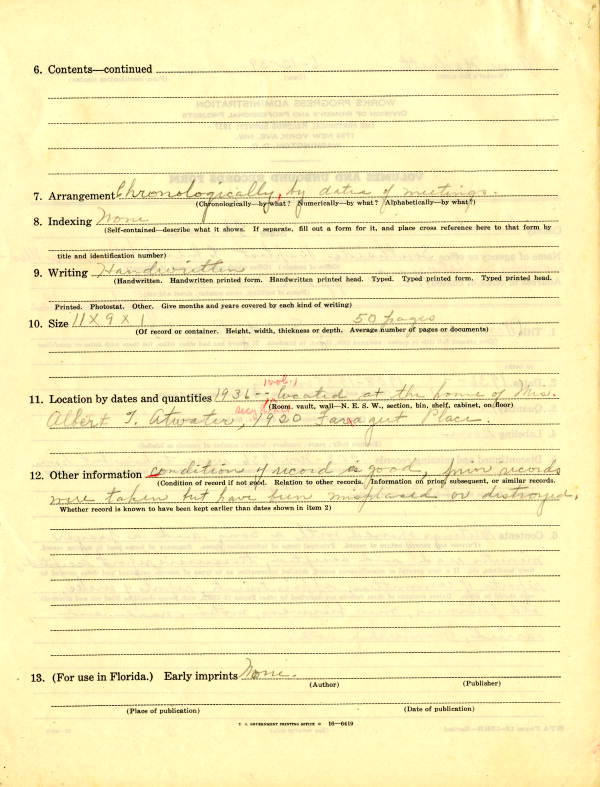 6. Contents—continued
7. Arrangement Chronologically, by dates of meetings.
(Chronologically—by what? Numerically—by what? Alphabetically—by what?)
8. Indexing None
(Self-contained—describe what it shows. If separate, fill out a form for it, and place cross reference here to that form by
title and identification number)
9. Writing Handwritten
(Handwritten. Handwritten printed form. Handwritten printed head. Typed. Typed printed form. Typed printed head.
Printed. Photostat. Other. Give months and years covered by each kind of writing)
10. Size 11 X 9 X 1 50 pages
(Of record or container. Height, width, thickness or depth. Average number of pages or documents)
1 vol.
11. Location by dates and quantities 1936 -- located at the home of Mrs.
(Room, vault, wall—N. E. S. W., section, bin, shelf, cabinet, on floor)
Albert T. Atwater, sec'y 1920 Farragut Place.
12. Other information condition of record is good, prior records
(Condition of record if not good. Relation to other records. Information on prior, subsequent, or similar records.
were taken but have been misplaced or distroyed.
Whether record is known to have been kept earlier than dates shown in item 2)
13. (For use in Florida.) Early imprints None.
(Author) (Publisher)
(Place of publication) (Date of publication)
U. S. GOVERNMENT PRINTING OFFICE 16—6419